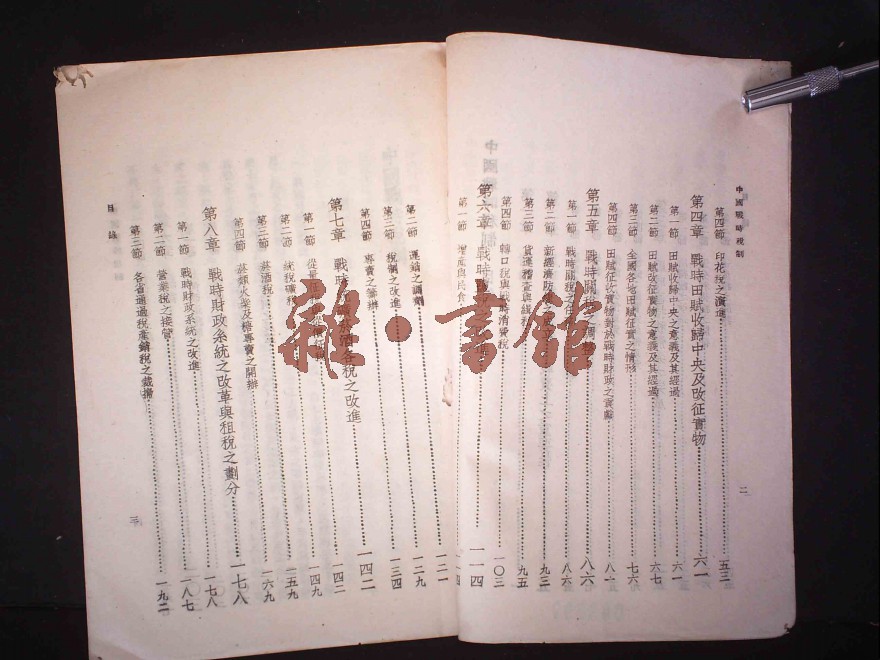 中國戰時稅制
第四節 印花稅之演進……五三
第四章 戰時田賦收歸中央及改征實物……六一
第一節 田賦收歸中央之意義及其經過……六一
第二節 田賦改征實物之意義及其經過……六七
第三節 全國各地田賦征實之情形……七六
第四節 田賦征收實物對於戰時財政之貢獻……八一
第五章 戰時關……八六
第一節 戰時關稅之任……八六
第二節 新經濟防……九三
第三節 貨運稽查與緝私……九五
第四節 轉口稅與戰時消費稅……一〇三
第六章 戰時……一一四
第一節 增產與民食……
二
第二節 運銷之調劑……一二一
第三節 稅制之改進……一二九
第四節 專賣之籌辦……一三四
第七章 戰時 菸酒各稅之改進……一四二
第一節 從量……一四二
第二節 統稅礦稅……一四九
第三節 菸酒稅……一五九
第四節 菸類火柴及糖專賣之開辦……一六九
第八章 戰時財政系統之改革與租稅之劃分……一七八
第一節 戰時財政系統之改進……一七八
第二節 營業稅之接管……一八七
第三節 各省通過稅產銷稅之裁撤……一九二
目錄
三
雜·書館